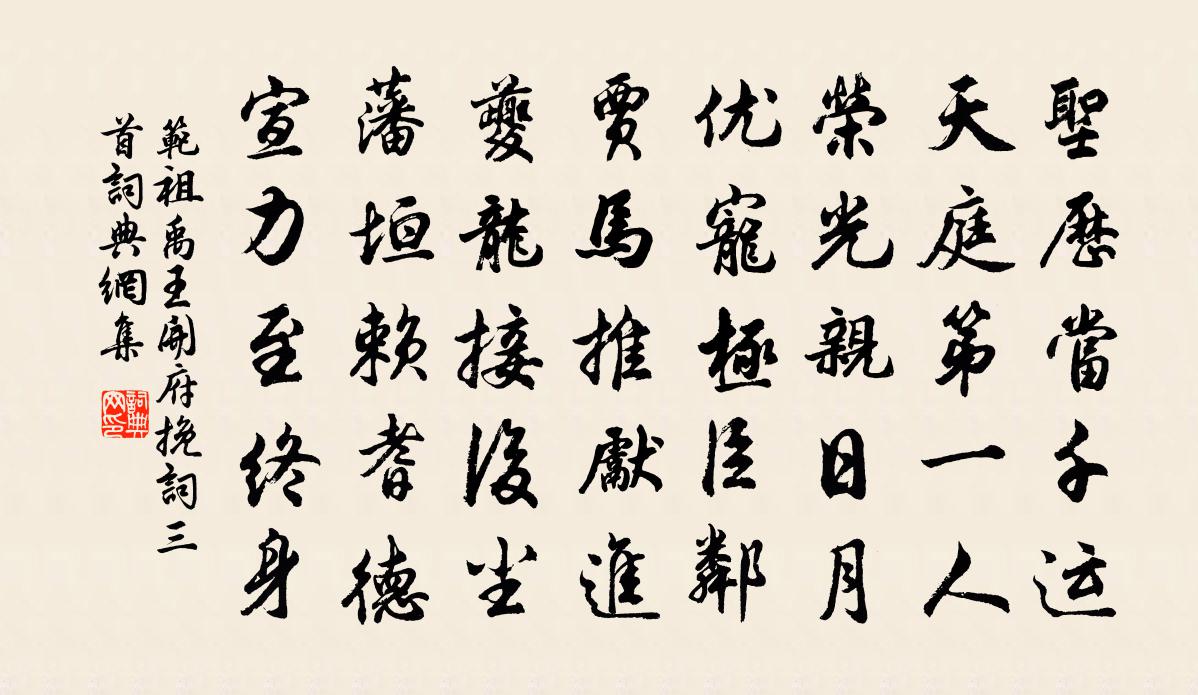 聖歷當千运
天庭第一人
榮光親日月
优寵極臣鄰
賈馬推獻進
夔龍接後塵
藩垣賴耆德
宣力至終身
範祖禹王開府挽詞三
首詞典網集
詞典
网印